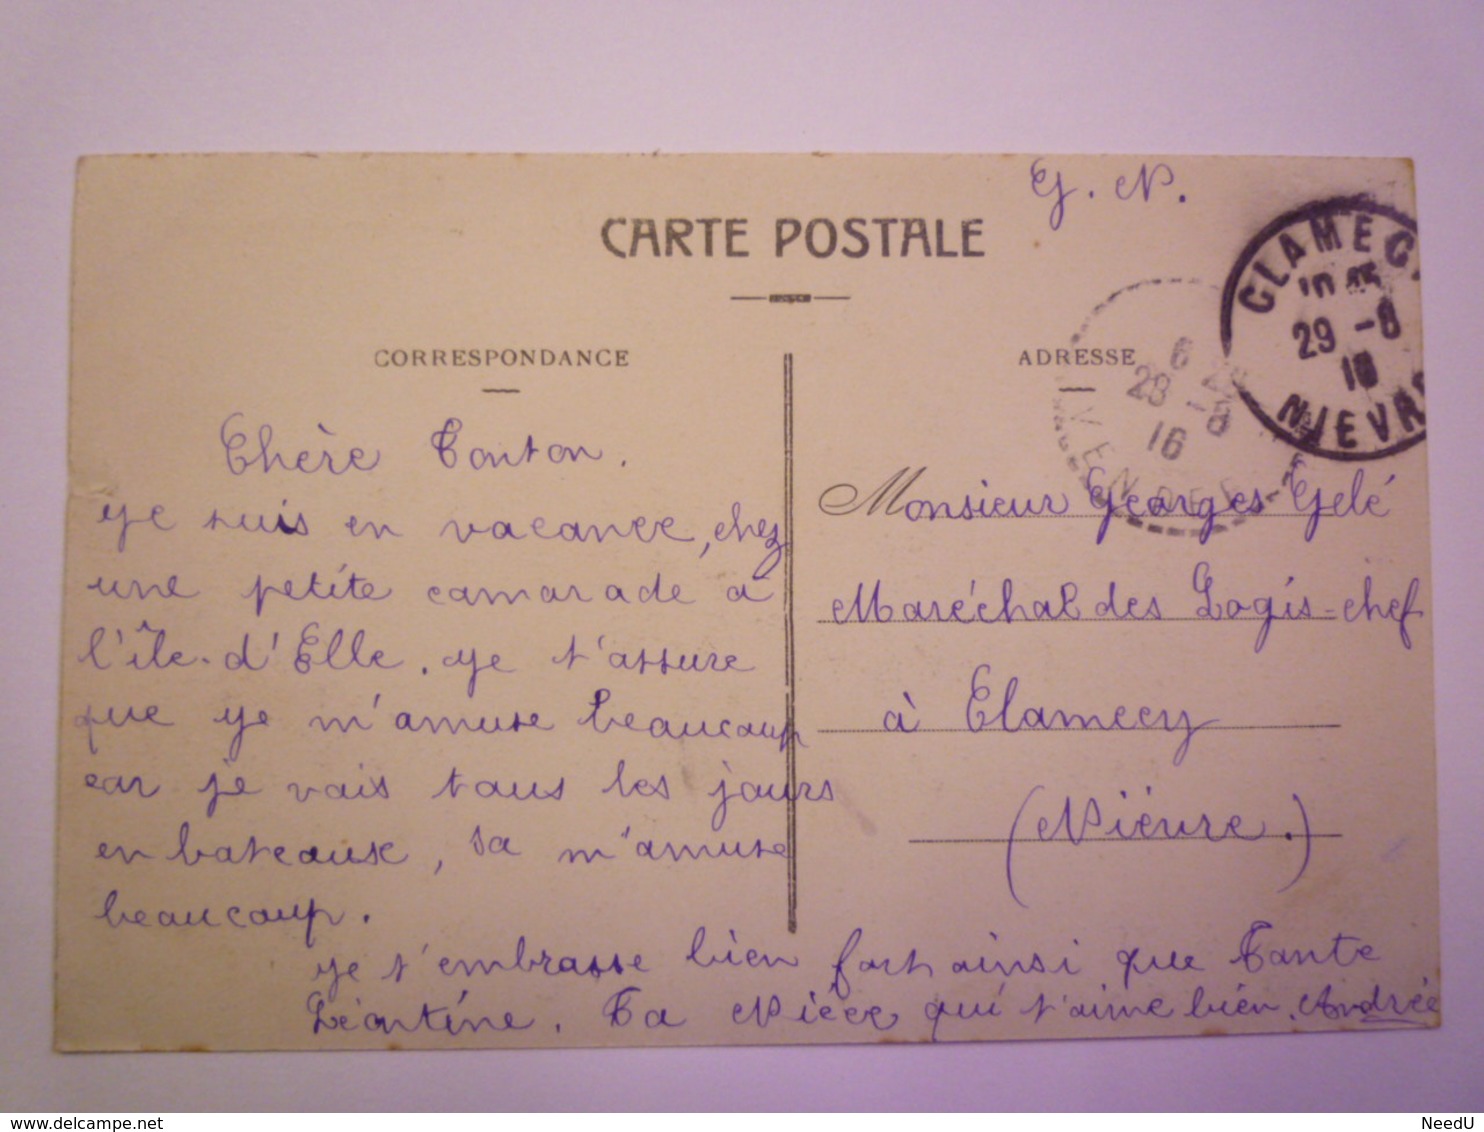 G. N.
CARTE POSTALE
CORRESPONDANCE
ADRESSE
CLAMECY
29 -8
16
NIEVRE
6
28 -8
16
VENDEE
Chère Tonton.
Je suis en vacance, chez
une petite camarade à
l'île-d'Elle. Je t'assure
que je m'amuse beaucoup
car je vais tous les jours
en bateaux, sa m'amuse
beaucoup.
Je t'embrasse bien fort ainsi que Tante
Léontine. Ta Nièce qui t'aime bien. Andrée
Monsieur Georges Gelé
Maréchal des Logis-chef
à Clamecy
(Nièvre.)
www.delcampe.net
NeedU